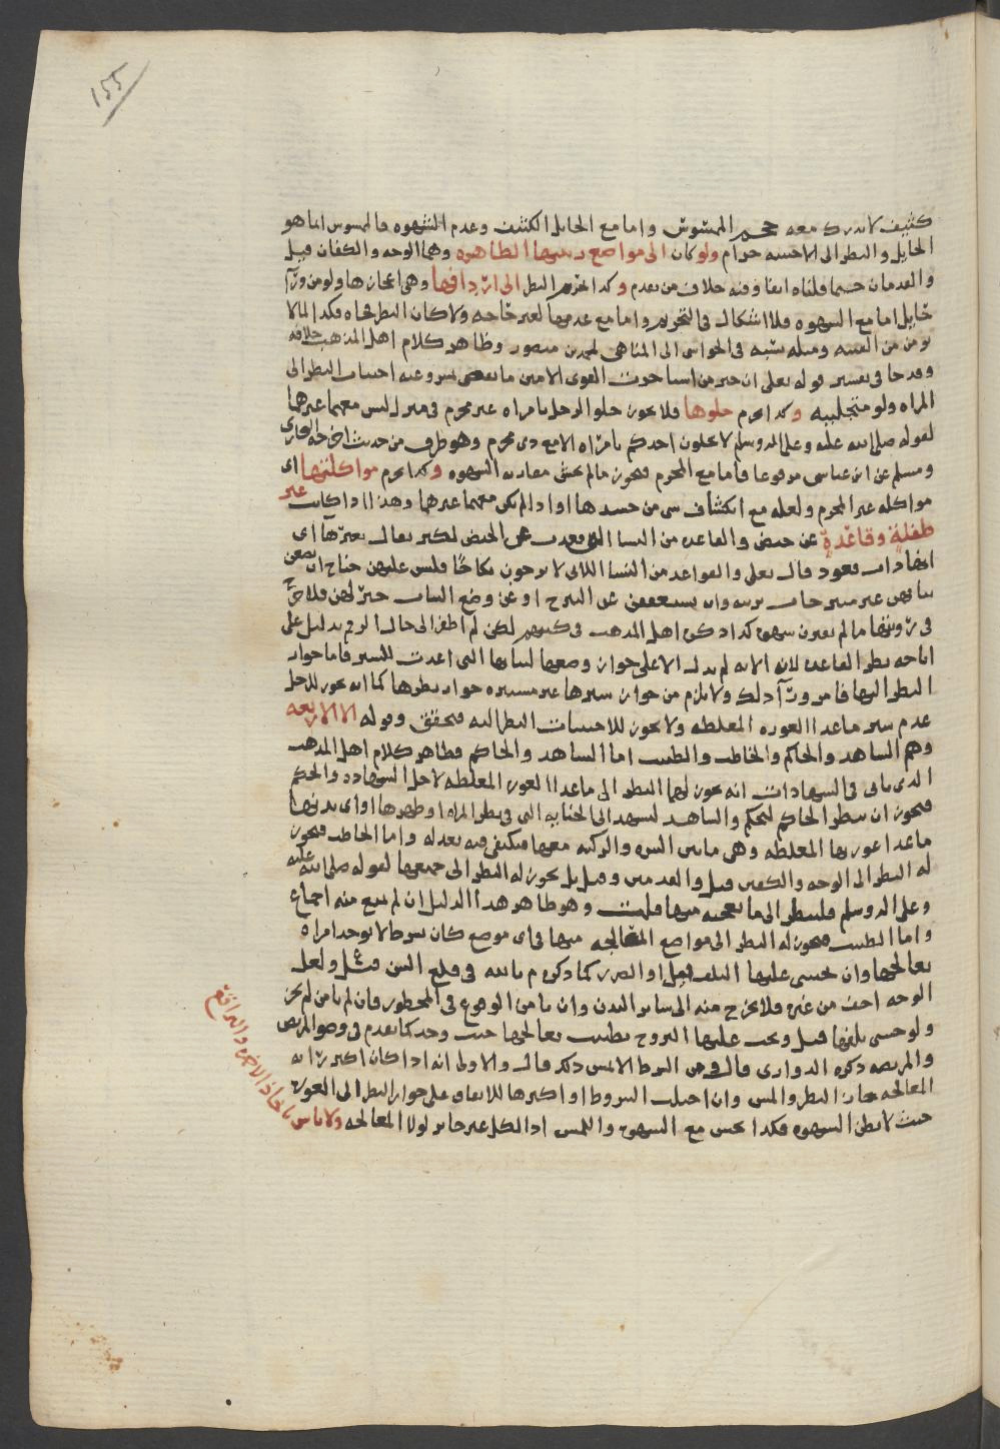 ١٥٥
كثيف لا يدرك معه حجم الممسوس واما مع الحايل الكثيف وعدم الشهوه فالممسوس انما هو
الحايل والنظر الى الاجنبيه حرام ولو كان الى مواضع زينتها الظاهره وهما الوجه والكفان قيل
والقدمان حسبما قلناه انفا وفيه خلاف من تقدم وكذا يحرم النظر الى اردافها وهي اعجازها ولو من ورآ
حايل اما مع الشهوه فلا اشكال في التحريم واما مع عدمها لغير حاجه ولا كان النظر فجاه فكذا لما لا
يومن من الفتنه ومثله شبه في الحواس الى المناهي لمحمد بن منصور وظاهر كلام اهل المذهب خلافه
وقد جا في تفسير قوله تعلى ان خير من استاجرت القوي الامين ما يقضي بشروعيه اجتناب النظر الى
المراه ولو متجلببه وكذا يحرم خلوها فلا يجوز خلو الرجل بامراه غير محرم في منزل ليس معهما غيرهما
لقوله صلى الله عليه وعلى اله وسلم لا يخلون احدكم بامراه الا مع ذي محرم وهو طرف من حديث اخرجه البخاري
ومسلم عن ابن عباس مرفوعا فاما مع المحرم فيجوز ما لم يخش مقارنه الشهوه وكذا يحرم مواكلتها اي
مواكله غير المحرم ولعله مع انكشاف شي من جسدها او اذا لم يكن معهما غيرهما وهذا اذا كانت غير
طفلة وقاعدة عن حيض والقاعده من النسا التي قعدت عن الحيض لكبر يقال بغير هآ اي
انها ذات قعود قال تعلى والقواعد من النسا اللاتي لا يرجون نكاحا فليس عليهن جناح ان يضعن
ثيابهن غير متبرجات بزينه وان يستعففن عن التبرج او عن وضع الثياب خير لهن فلا حرج
في رؤيتها ما لم يقترن شهوه كذا ذكره اهل المذهب في كتبهم لكن لم اظفر الى حال الرقم بدليل على
اباحه نظر القاعده لان الايه لم تدل الا على جواز وضعها لثيابها التي اعدت للستر فاما جواز
النظر اليها فامر ورآ ذلك ولا يلزم من جواز سيرها غير مستتره جواز نظرها كما انه يجوز للرجل
عدم ستر ما عدا العوره المغلظه ولا يجوز للاجنبيات النظر اليه فيحقق وقوله الا الاربعه
وهم الشاهد والحاكم والخاطب والطبيب اما الشاهد والحاكم فظاهر كلام اهل المذهب
الذي ياتي في الشهادات انه يجوز لهما النظر الى ما عدا العوره المغلظه لاجل الشهاده والحكم
فيجوز ان ينظر الحاكم ليحكم والشاهد ليشهد الى الجنايه التي في بطن المراه او ظهرها او اي بدنها
ما عدا عورتها المغلظه وهي ما بين السره والركبه معها فيكتفي فيه بعدله واما الخاطب فيجوز
له النظر الى الوجه والكفين قيل والقدمين وقيل بل يجوز له النظر الى جميعها لقوله صلى الله عليه
وعلى اله وسلم فلينظر الى ما يعجبه منها قلت وهو ظاهر هذا الدليل ان لم يمنع منه اجماع
واما الطبيب فيجوز له النظر الى مواضع المعالجه منها في اي موضع كان بشرط لا توجد امراه
تعالجها وان يخشى عليها التلف قيل او الضرر كما ذكره م بالله في قلع السن قيل ولعل
الوجه اخف من غيره فلا يخرج منه الى ساير البدن وان يامن الوقوع في المحظور فان لم يامن لم يجز
ولو خشي تلفها قيل ويجب عليها التزوج بطبيب يعالجها حيث وجد كما تقدم في وضو المريض
والمريضه ذكره الدواري قال ومن الشرط الا يمس ذلك قال والاولى انه اذا كان اكبر رايه
المعالجه جاز النظر والمس وان اختلت الشروط او اكبرها للاتفاق على جواز النظر الى العوره
حيث لا يظن الشهوه فكذا يحس مع الشهوه واللمس اذا الكل غير جايز لولا المعالجه ولا باس
باتخاذ الاخمره والبراقع